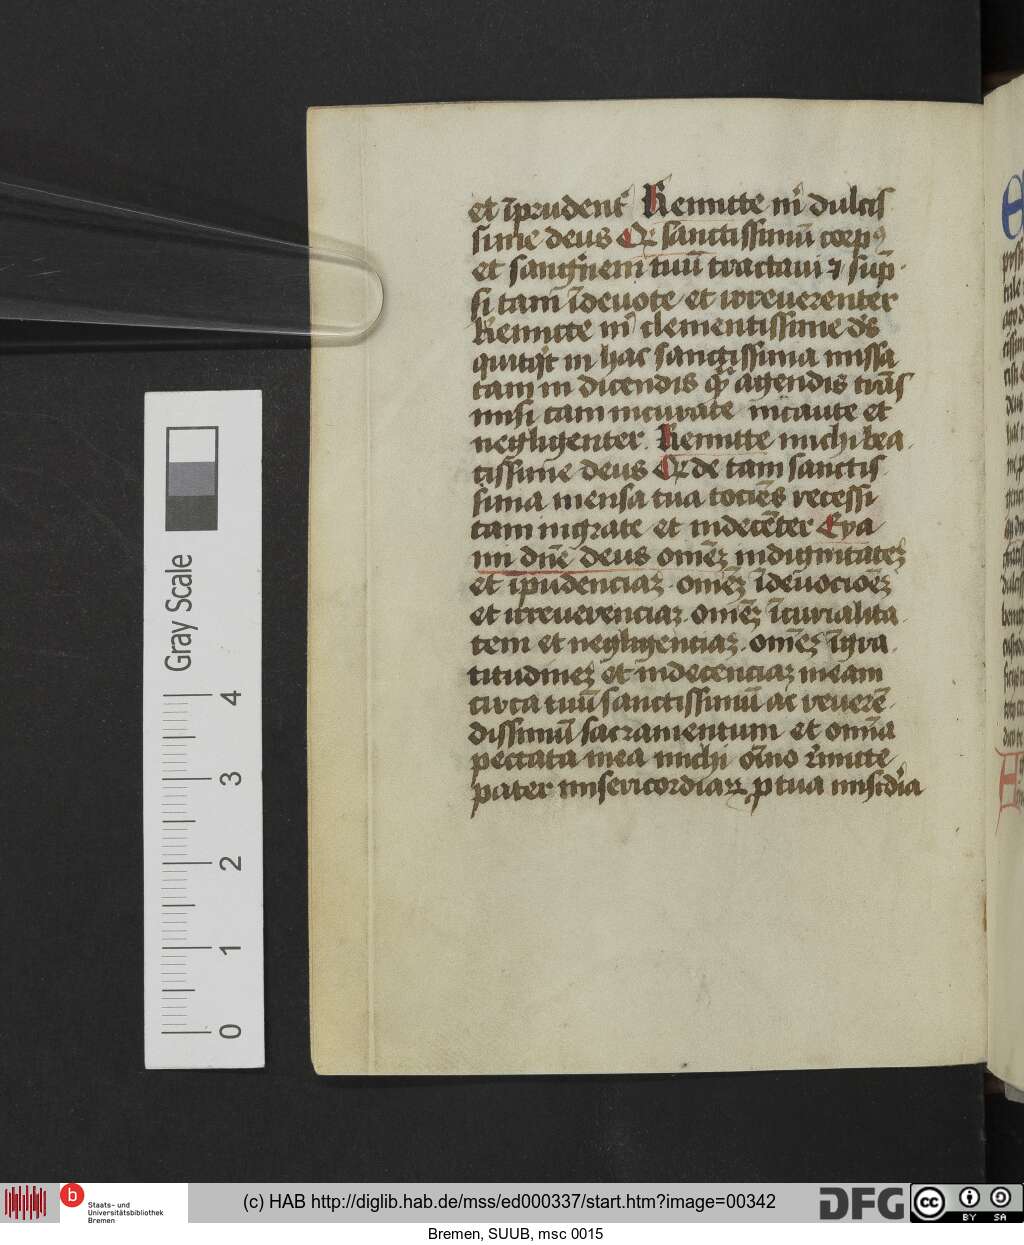 et īprudent᷑ Remitte m̄ dulcis
sime deus Qꝛ sanctissimū corpꝰ
et sanḡnem tuū tractaui ⁊ sūp
si tam īdeuote et irreuerenter
Remitte m̄ clementissime ds̄
in hac sanctissima missa
tam in dicendis qͣ agendis trās
misi tam incurate incaute et
negligenter. Remitte michi bea
tissime deus Qꝛ de tam sanctis
sima mensa tua tociēs recessi
tam ingrate et indecēter Eya
mi dn̄e deus omēꝫ indignitateꝫ
et īpudenciaꝫ. omēꝫ īdeuocioēꝫ
et irreuerenciaꝫ. omēꝫ īcurialita
tem et negligenciaꝫ. omēꝫ īgra
titudineꝫ et indecenciaꝫ meam
circa tuū sanctissimū ac reuerē
dissimū sacramentum et omīa
peccata mea michi oīno r̄mitte
pater misericordiaꝝ ꝑ tua misēdia
Gray Scale
4
3
2
1
0
b
Staats- und
Universitätsbibliothek
Bremen
(c) HAB http://diglib.hab.de/mss/ed000337/start.htm?image=00342
DFG
cc
BY SA
Bremen, SUUB, msc 0015